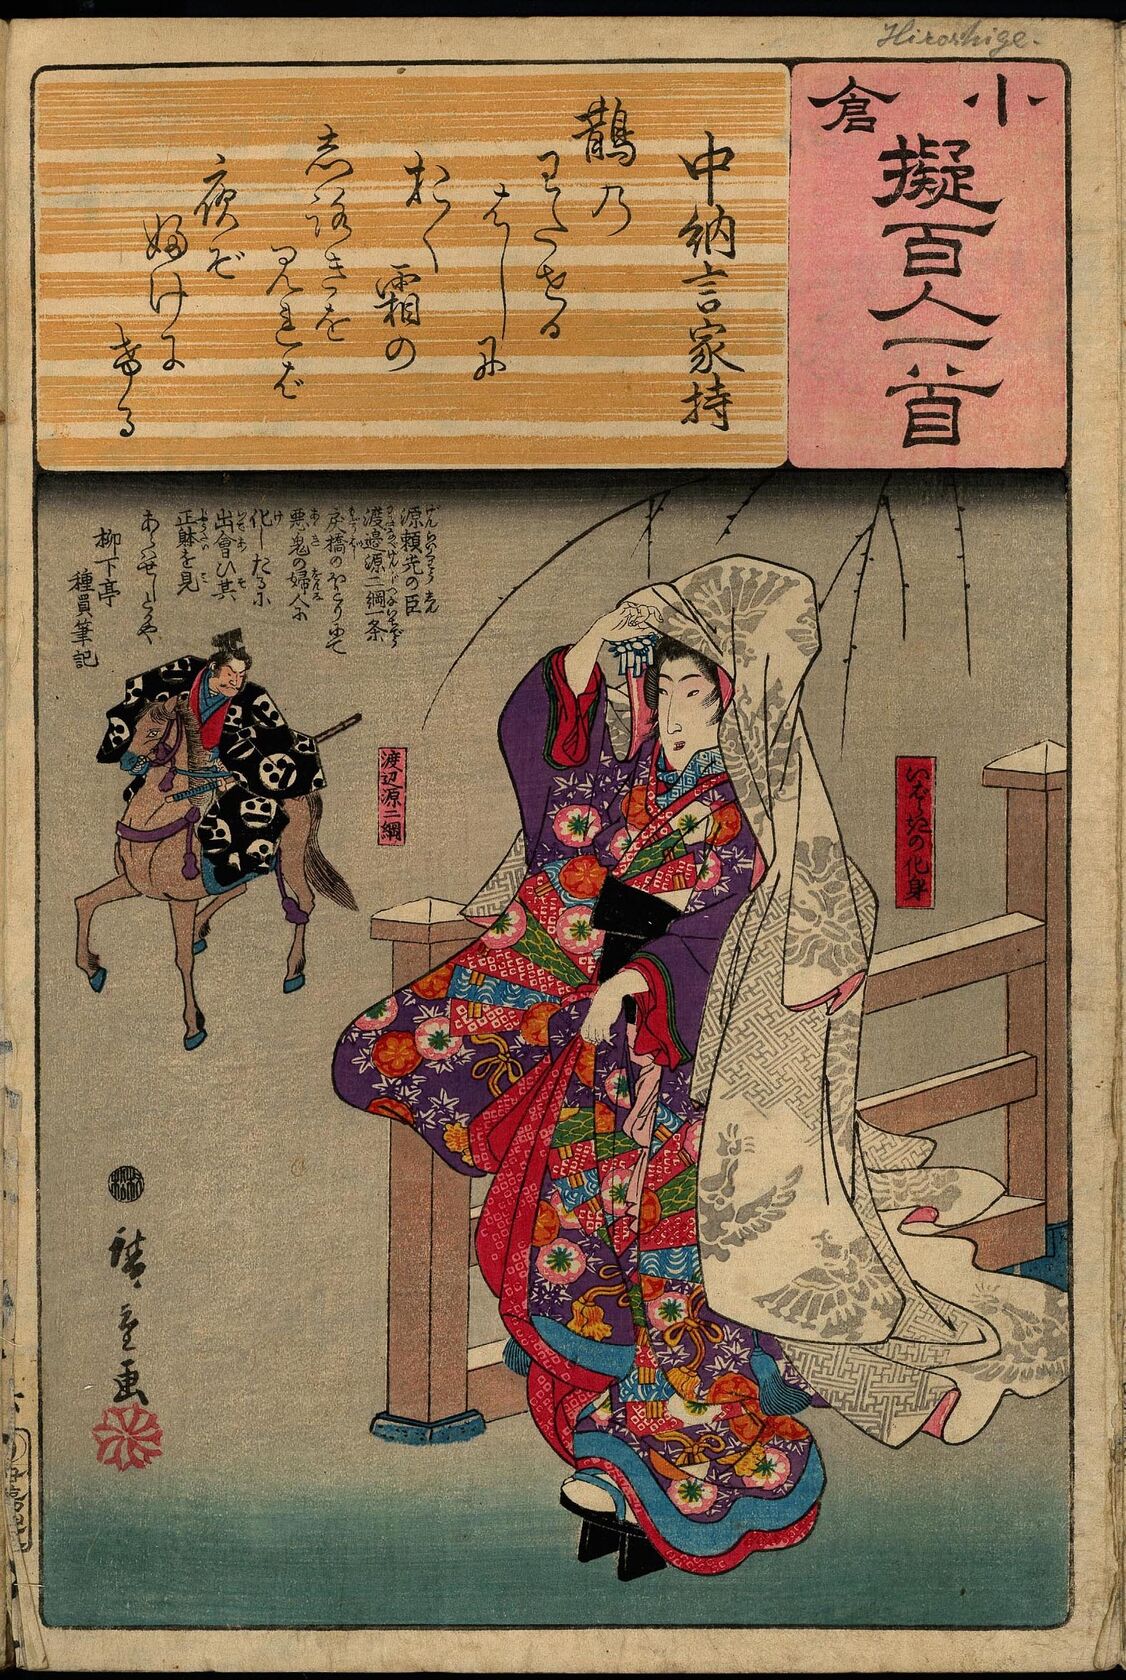 Hiroshige.
小倉
擬百人一首
中納言家持
鵲乃
わたせる
はしに
おく
霜の
しろきを
みれば
夜ぞ
ふけに
ける
源頼光の臣
渡邉源二綱一条
戻橋のほとりにて
悪鬼の婦人に
化したるに
出會ひ其
正躰を見
あらはせしとかや
柳下亭
種員筆記
渡辺源二綱
いばらきの化身
廣重画